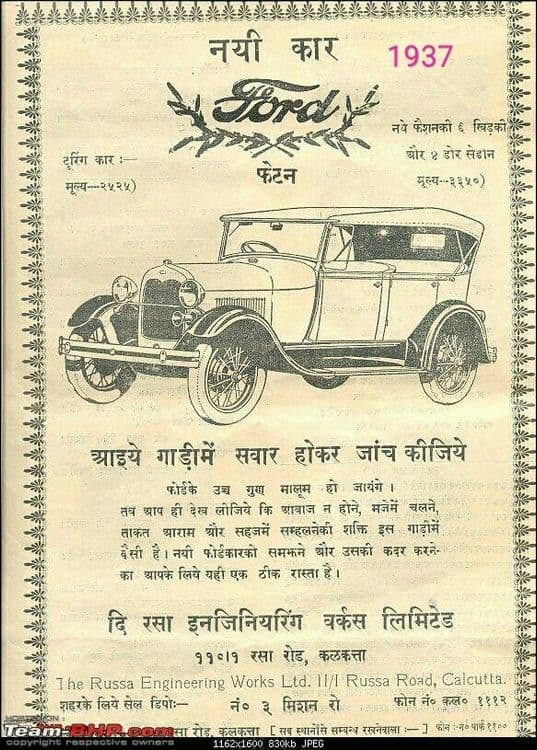 नयी कार
1937
Ford
नये फैशनकी ६ खिड़की
टूरिंग कार :—
और ४ डोर सेडान
मूल्य—२५२५)
फेटन
मूल्य—३३५०)
आइये गाड़ीमें सवार होकर जांच कीजिये
फोर्डके उच्च गुण मालूम हो जायंगे।
तब आप ही देख लीजिये कि आवाज न होने, मजेमें चलने,
ताकत आराम और सहजमें सम्हलनेकी शक्ति इस गाड़ीमें
कैसी है। नयी फोर्डकारको समझने और उसकी कदर करने-
का आपके लिये यही एक ठीक रास्ता है।
दि रसा इनजिनियरिंग वर्कस लिमिटेड
११०।१ रसा रोड, कलकत्ता
The Russa Engineering Works Ltd. 11/1 Russa Road, Calcutta.
शहरके लिये सेल डिपो:— नं० ३ मिशन रो फोन नं० कल० १११२
रसा रोड, कलकत्ता [ सब स्थानोंसे सम्बन्ध रखनेवाला :— फोन :-नं० पार्क ११००
Team-BHP.com
copyright respective owners
1162x1600 830kb JPEG